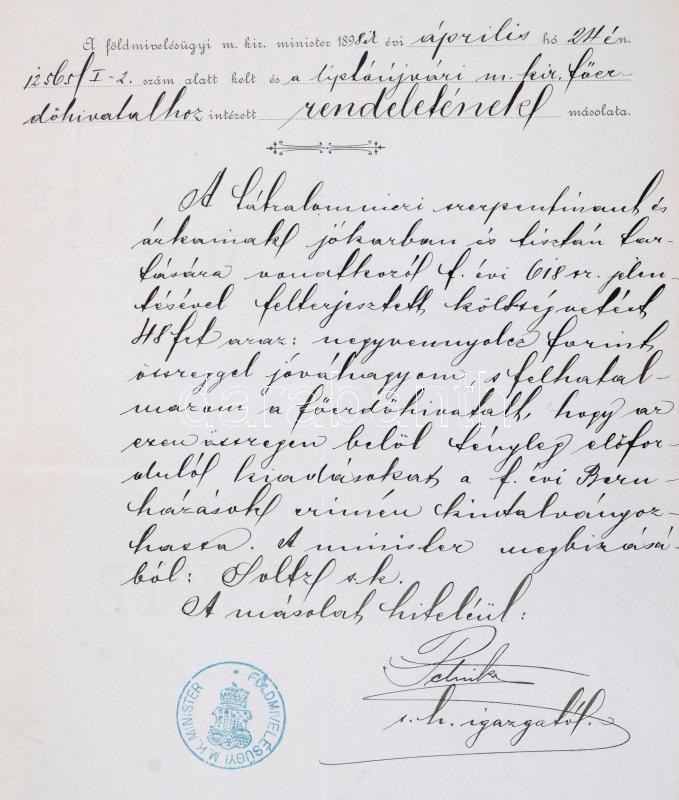 A földmivelésügyi m. kir. minister 1898ik évi április hó 24én.
12565/I-2. szám alatt kelt és a liptóújvári m. kir. főer-
dőhivatalhoz intézett rendeletének másolata.
A tátralomnici szerpentinant és
árkainak jókarban és tisztán tar-
tására vonatkozól f. évi 618 sz. jelen-
tésével felterjesztett költségvetést
48 frt azaz: negyvennyolcz forint
összeggel jóváhagyom s felhatal-
mazom a főerdőhivatalt, hogy az
ezen összegen belől tényleg előfor-
duló kiadásokat a f. évi Beru-
házások czimén kiutalványoz-
hassa. A minister megbizásá-
ból: Soltz s.k.
A másolat hiteléül:
s. h. igazgató.
FÖLDMIVELÉSÜGYI M. K. MINISTER
darabanth